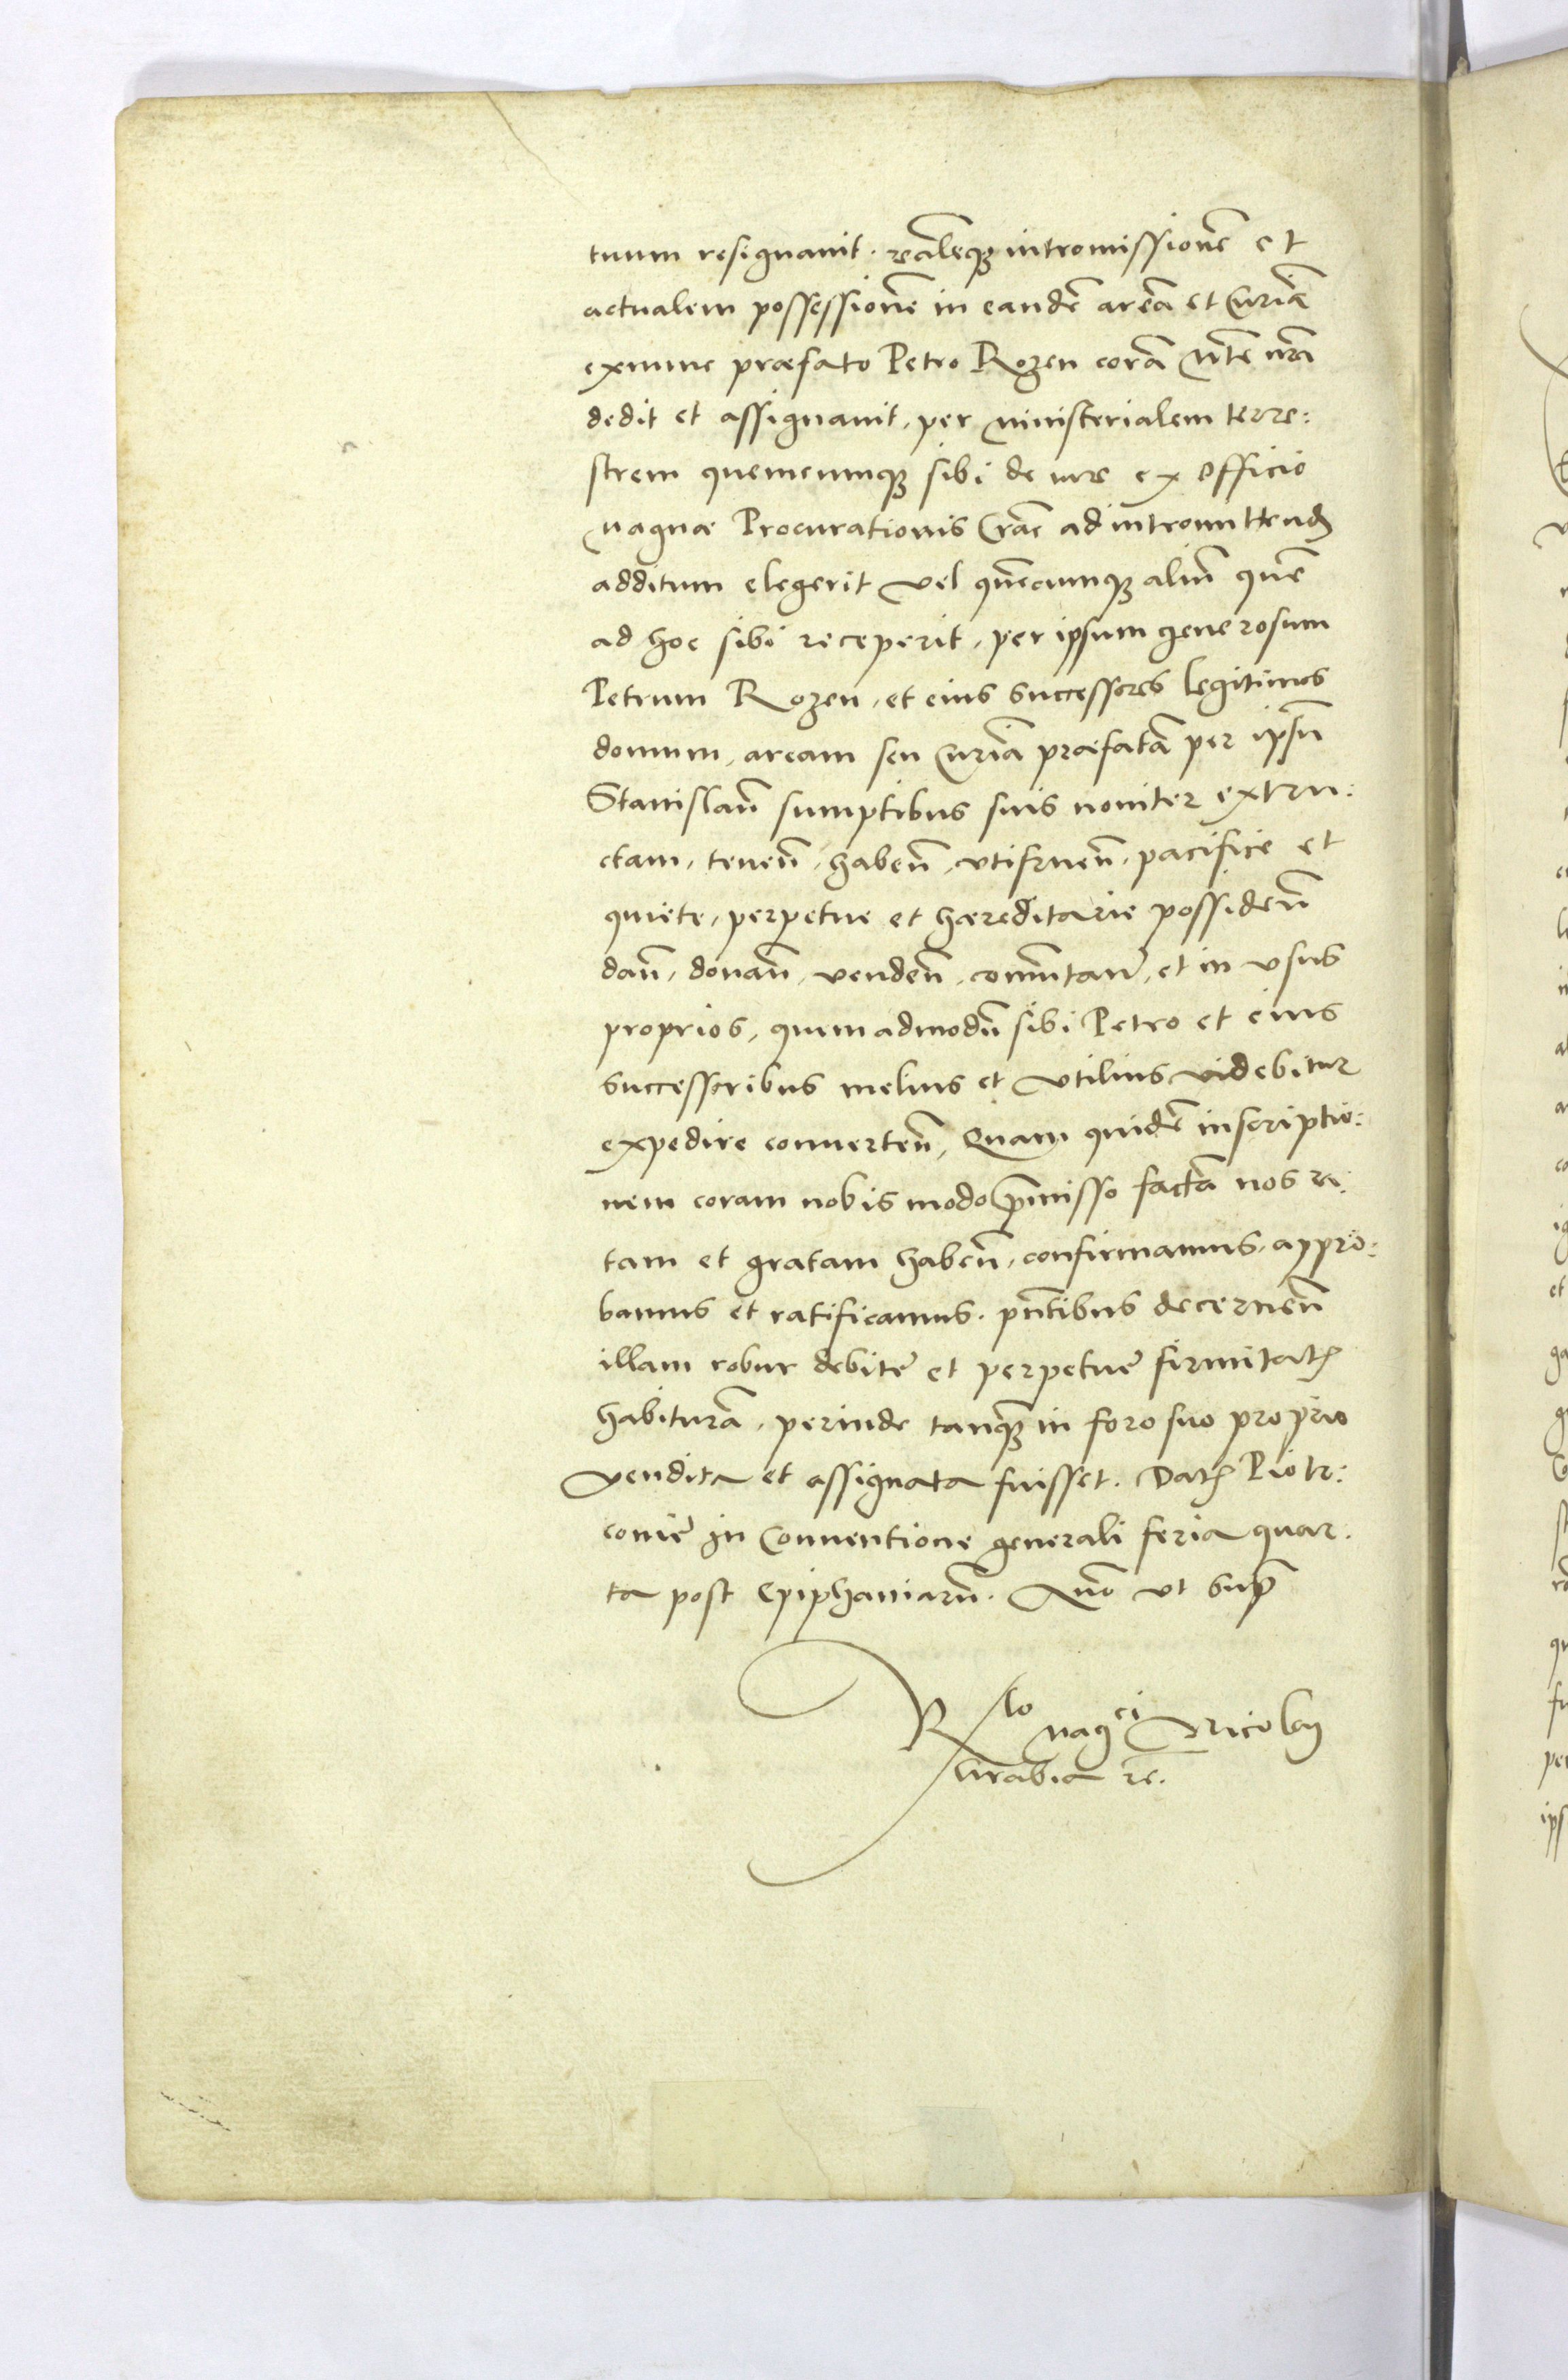 tuum resignauit. realeq₃ intromissionē et
actualem possessionē in eandē areā et Curiā
exnunc præfato Petro Rozen corā Mte nrā
dedit et assignauit, per ministerialem terre:
strem quemcumq₃ sibi de iure ex officio
magnæ Procurationis Crac ad intromittend
additum elegerit vel quēcumq₃ aliū quē
ad hoc sibi receperit, per ipsum generosum
Petrum Rozen, et eius successores legitimos
domum, aream seu Curiā præfatā per ipsū
Stanislaū sumptibus suis nouiter extru:
ctam, tenen̄, haben̄, vtifruen̄, pacifice et
quiete, perpetue et hæreditarie possiden̄
dan̄, donan̄, venden̄, commutan̄, et in vsus
proprios, quemadmodū sibi Petro et eius
successoribus melius et vtilius videbitur
expedire conuerten̄, Quam quidē inscriptio:
nem coram nobis modo p̄misso factā nos ra:
tam et gratam haben̄, confirmamus, appro:
bamus et ratificamus. pn̄tibus decernen̄
illam robur debite et perpetue firmitatis
habiturā, perinde tanq₃ in foro suo proprio
vendita et assignata fuisset. Datū Piotr:
couie in Conuentione generali feria quar:
ta post Epiphaniarū. Anno vt supra
Rlo magci Nicolai
Grabia rc.